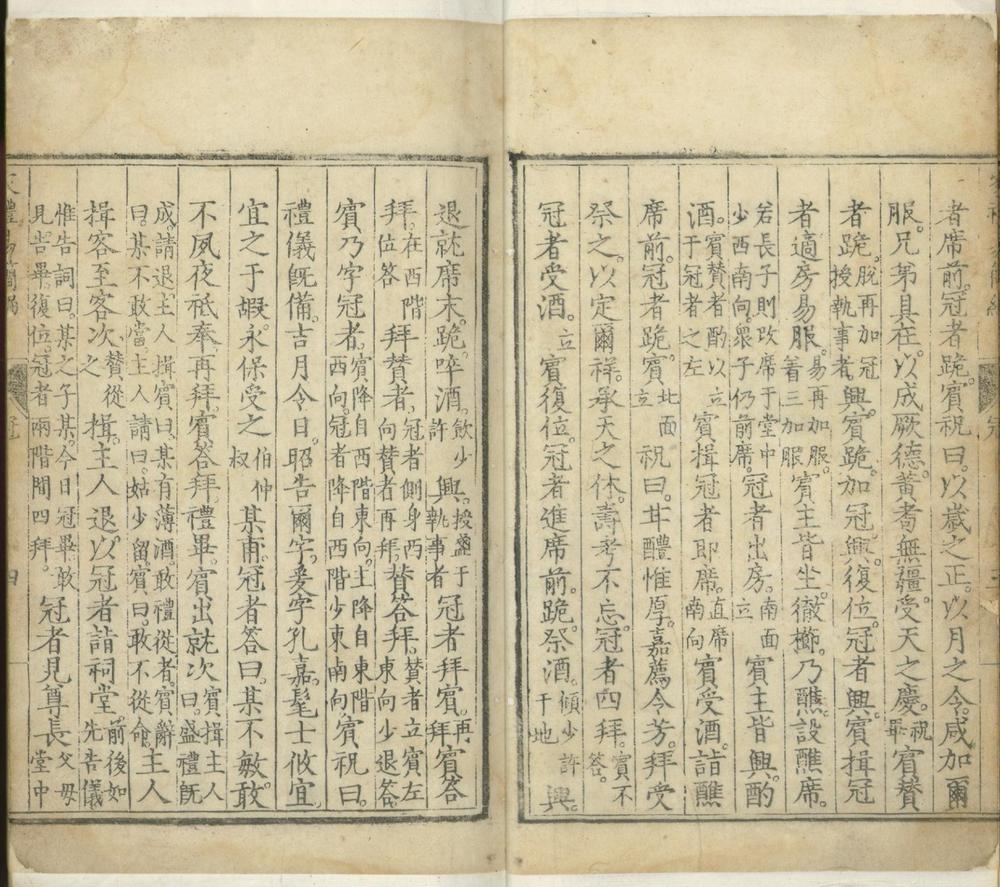 者席前。冠者跪。賓祝曰。以歲之正。以月之令。咸加爾
服。兄弟具在。以成厥德。黃耇無疆。受天之慶。祝畢賓贊
者跪。脫再加冠授執事者。興。賓跪。加冠。興。復位。冠者興。賓揖冠
者適房易服。易再加服。着三加服賓主皆坐。徹櫛。乃醮。設醮席。
若長子則改席于堂中少西南向。衆子仍前席。冠者出房。南面立賓主皆興。酌
酒。賓贊者酌以酒于冠者之左立賓揖冠者即席。直席南向賓受酒。詣醮
席前。冠者跪。賓北面立祝曰。甘醴惟厚。嘉薦令芳。拜受
祭之。以定爾祥。承天之休。壽考不忘。冠者四拜。賓不答。
冠者受酒。立賓復位。冠者進席前。跪。祭酒。傾少許于地興。
退就席末。跪。啐酒。飲少許興。授盞于執事者冠者拜賓。再拜賓答
拜。在西階拜位答拜贊者。冠者側身西向贊者再拜。贊答拜。贊者立賓左東向少退答。
賓乃字冠者。賓降自西階東向。主降自東階西向。冠者降自西階少東南向賓祝曰。
禮儀旣備。吉月令日。昭告爾字。爰字孔嘉。髦士攸宜
宜之于嘏。永保受之伯仲叔某甫。冠者答曰。某不敏。敢
不夙夜祗奉。再拜。賓答拜。禮畢。賓出就次賓揖主人曰盛禮旣
成。請退。主人揖賓曰。某有薄酒。敢禮從者。賓辭曰。某不敢當。主人請曰。姑少留。賓曰。敢不從命。主人
揖客至客次。贊從之揖。主人退。以冠者詣祠堂前後如先告儀
惟告詞曰。某之子某。今日冠畢。敢見。告畢。復位。冠者兩階間四拜。冠者見尊長父母堂中